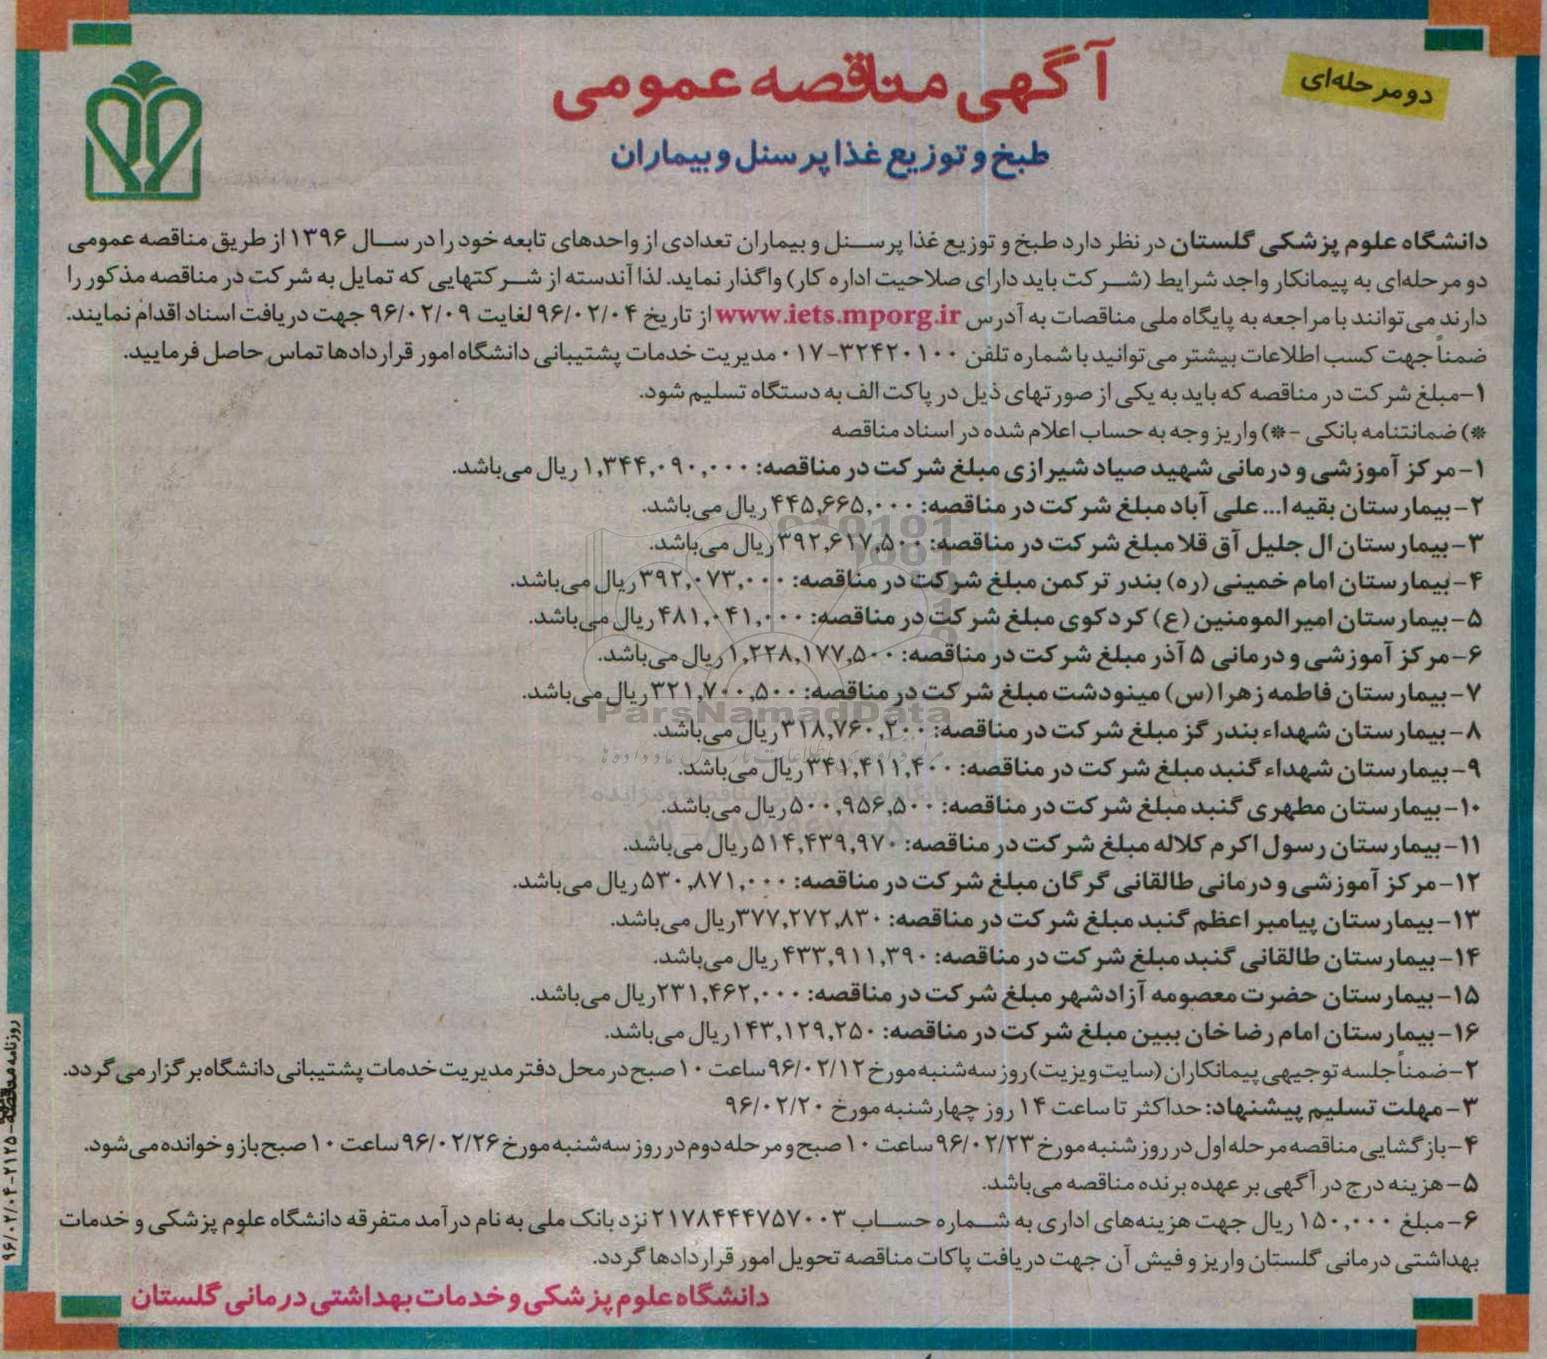 دو مرحله‌ای
آگهی مناقصه عمومی
طبخ و توزیع غذا پرسنل و بیماران
دانشگاه علوم پزشکی گلستان در نظر دارد طبخ و توزیع غذا پرسنل و بیماران تعدادی از واحدهای تابعه خود را در سال ۱۳۹۶ از طریق مناقصه عمومی
دو مرحله‌ای به پیمانکار واجد شرایط (شرکت باید دارای صلاحیت اداره کار) واگذار نماید. لذا آندسته از شرکتهایی که تمایل به شرکت در مناقصه مذکور را
دارند می‌توانند با مراجعه به پایگاه ملی مناقصات به آدرس www.iets.mporg.ir از تاریخ ۹۶/۰۲/۰۴ لغایت ۹۶/۰۲/۰۹ جهت دریافت اسناد اقدام نمایند.
ضمناً جهت کسب اطلاعات بیشتر می‌توانید با شماره تلفن ۳۲۴۲۰۱۰۰-۰۱۷ مدیریت خدمات پشتیبانی دانشگاه امور قراردادها تماس حاصل فرمایید.
۱-مبلغ شرکت در مناقصه که باید به یکی از صورتهای ذیل در پاکت الف به دستگاه تسلیم شود.
*) ضمانتنامه بانکی -*) واریز وجه به حساب اعلام شده در اسناد مناقصه
۱-مرکز آموزشی و درمانی شهید صیاد شیرازی مبلغ شرکت در مناقصه: ۱,۳۴۴,۰۹۰,۰۰۰ ریال می‌باشد.
۲-بیمارستان بقیه ا... علی آباد مبلغ شرکت در مناقصه: ۴۴۵,۶۶۵,۰۰۰ ریال می‌باشد.
۳-بیمارستان ال جلیل آق قلا مبلغ شرکت در مناقصه: ۳۹۲,۶۱۷,۵۰۰ ریال می‌باشد.
۴-بیمارستان امام خمینی (ره) بندر ترکمن مبلغ شرکت در مناقصه: ۳۹۲,۰۷۳,۰۰۰ ریال می‌باشد.
۵-بیمارستان امیرالمومنین (ع) کردکوی مبلغ شرکت در مناقصه: ۴۸۱,۰۴۱,۰۰۰ ریال می‌باشد.
۶-مرکز آموزشی و درمانی ۵ آذر مبلغ شرکت در مناقصه: ۱,۲۲۸,۱۷۷,۵۰۰ ریال می‌باشد.
۷-بیمارستان فاطمه زهرا (س) مینودشت مبلغ شرکت در مناقصه: ۳۲۱,۷۰۰,۵۰۰ ریال می‌باشد.
۸-بیمارستان شهداء بندر گز مبلغ شرکت در مناقصه: ۳۱۸,۷۶۰,۲۰۰ ریال می‌باشد.
۹-بیمارستان شهداء گنبد مبلغ شرکت در مناقصه: ۳۴۱,۴۱۱,۴۰۰ ریال می‌باشد.
۱۰-بیمارستان مطهری گنبد مبلغ شرکت در مناقصه: ۵۰۰,۹۵۶,۵۰۰ ریال می‌باشد.
۱۱-بیمارستان رسول اکرم کلاله مبلغ شرکت در مناقصه: ۵۱۴,۴۳۹,۹۷۰ ریال می‌باشد.
۱۲-مرکز آموزشی و درمانی طالقانی گرگان مبلغ شرکت در مناقصه: ۵۳۰,۸۷۱,۰۰۰ ریال می‌باشد.
۱۳-بیمارستان پیامبر اعظم گنبد مبلغ شرکت در مناقصه: ۳۷۷,۲۷۲,۸۳۰ ریال می‌باشد.
۱۴-بیمارستان طالقانی گنبد مبلغ شرکت در مناقصه: ۴۳۳,۹۱۱,۳۹۰ ریال می‌باشد.
۱۵-بیمارستان حضرت معصومه آزادشهر مبلغ شرکت در مناقصه: ۲۳۱,۴۶۲,۰۰۰ ریال می‌باشد.
۱۶-بیمارستان امام رضا خان ببین مبلغ شرکت در مناقصه: ۱۴۳,۱۲۹,۲۵۰ ریال می‌باشد.
۲-ضمناً جلسه توجیهی پیمانکاران (سایت ویزیت) روز سه‌شنبه مورخ ۹۶/۰۲/۱۲ ساعت ۱۰ صبح در محل دفتر مدیریت خدمات پشتیبانی دانشگاه برگزار می‌گردد.
۳-مهلت تسلیم پیشنهاد: حداکثر تا ساعت ۱۴ روز چهارشنبه مورخ ۹۶/۰۲/۲۰
۴-بازگشایی مناقصه مرحله اول در روز شنبه مورخ ۹۶/۰۲/۲۳ ساعت ۱۰ صبح و مرحله دوم در روز سه‌شنبه مورخ ۹۶/۰۲/۲۶ ساعت ۱۰ صبح باز و خوانده می‌شود.
۵-هزینه درج در آگهی بر عهده برنده مناقصه می‌باشد.
۶-مبلغ ۱۵۰,۰۰۰ ریال جهت هزینه‌های اداری به شماره حساب ۲۱۷۸۴۴۴۷۵۷۰۰۳ نزد بانک ملی به نام درآمد متفرقه دانشگاه علوم پزشکی و خدمات
بهداشتی درمانی گلستان واریز و فیش آن جهت دریافت پاکات مناقصه تحویل امور قراردادها گردد.
دانشگاه علوم پزشکی و خدمات بهداشتی درمانی گلستان
روزنامه مناقصه-۲۱۲۵-۹۶/۰۲/۰۴
ParsNamadData